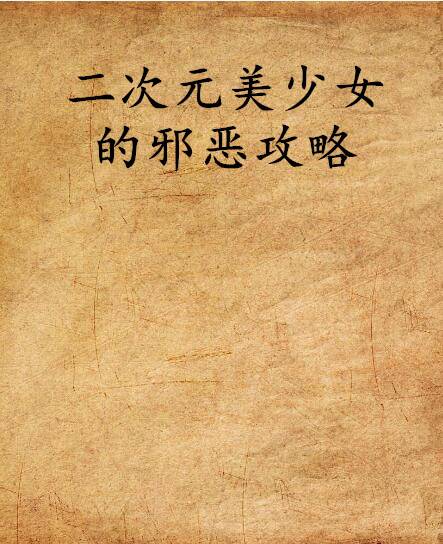 二次元美少女
的邪恶攻略